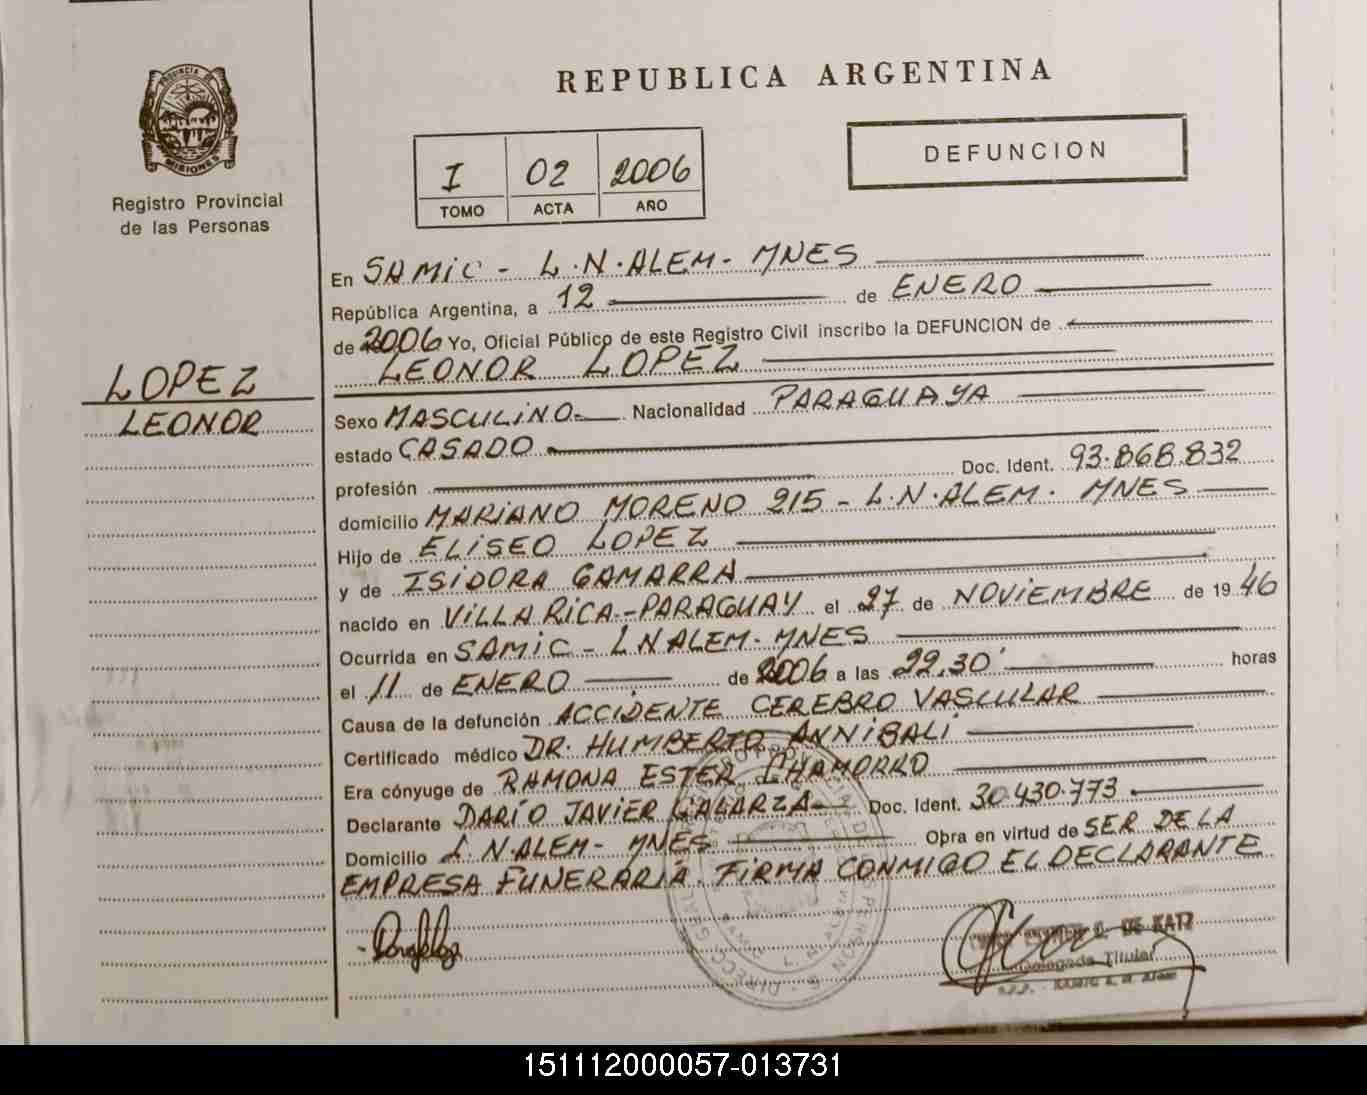 REPUBLICA ARGENTINA
PROVINCIA DE
MISIONES
Registro Provincial
de las Personas
I 02 2006
TOMO ACTA AÑO
DEFUNCION
LOPEZ
LEONOR
En SAMIC - L.N.ALEM - MNES
República Argentina, a 12 de ENERO
de 2006 Yo, Oficial Público de este Registro Civil inscribo la DEFUNCION de
LEONOR LOPEZ
Sexo MASCULINO Nacionalidad PARAGUAYA
estado CASADO
profesión Doc. Ident. 93.868.832
domicilio MARIANO MORENO 215 - L.N.ALEM. MNES
Hijo de ELISEO LOPEZ
y de ISIDORA GAMARRA
nacido en VILLA RICA - PARAGUAY el 27 de NOVIEMBRE de 1946
Ocurrida en SAMIC - LNALEM - MNES
el 11 de ENERO de 2006 a las 22,30' horas
Causa de la defunción ACCIDENTE CEREBRO VASCULAR
Certificado médico DR. HUMBERTO ANNIBALI
Era cónyuge de RAMONA ESTER CHAMORRO
Declarante DARÍO JAVIER GALARZA Doc. Ident. 30.430.773
Domicilio L.N.ALEM - MNES Obra en virtud de SER DE LA
EMPRESA FUNERARIA. FIRMA CONMIGO EL DECLARANTE
DE KATZ
Delegada Titular
151112000057-013731